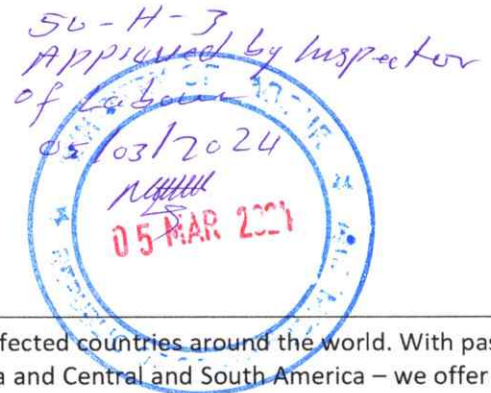 50-H-3
Approved by Inspector
of Labour
05/03/2024
MINISTRY OF LABOUR
05 MAR
fected countries around the world. With pas
a and Central and South America – we offer